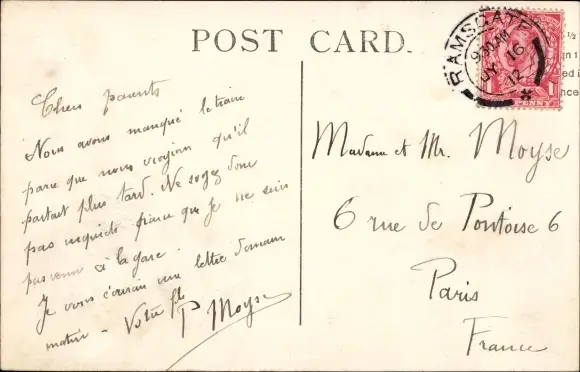 POST CARD.
RAMSGATE
9.30AM
JY 16
12
PENNY
1
½
Chers parents
Nous avons manqué le train
parce que nous croyions qu'il
partait plus tard. Ne soyez donc
pas inquiets parce que je ne suis
pas venu à la gare.
Je vous écrirai une lettre demain
matin - Votre fils
P Moyse
Madame et Mr. Moyse
6 rue de Pontoise 6
Paris
France